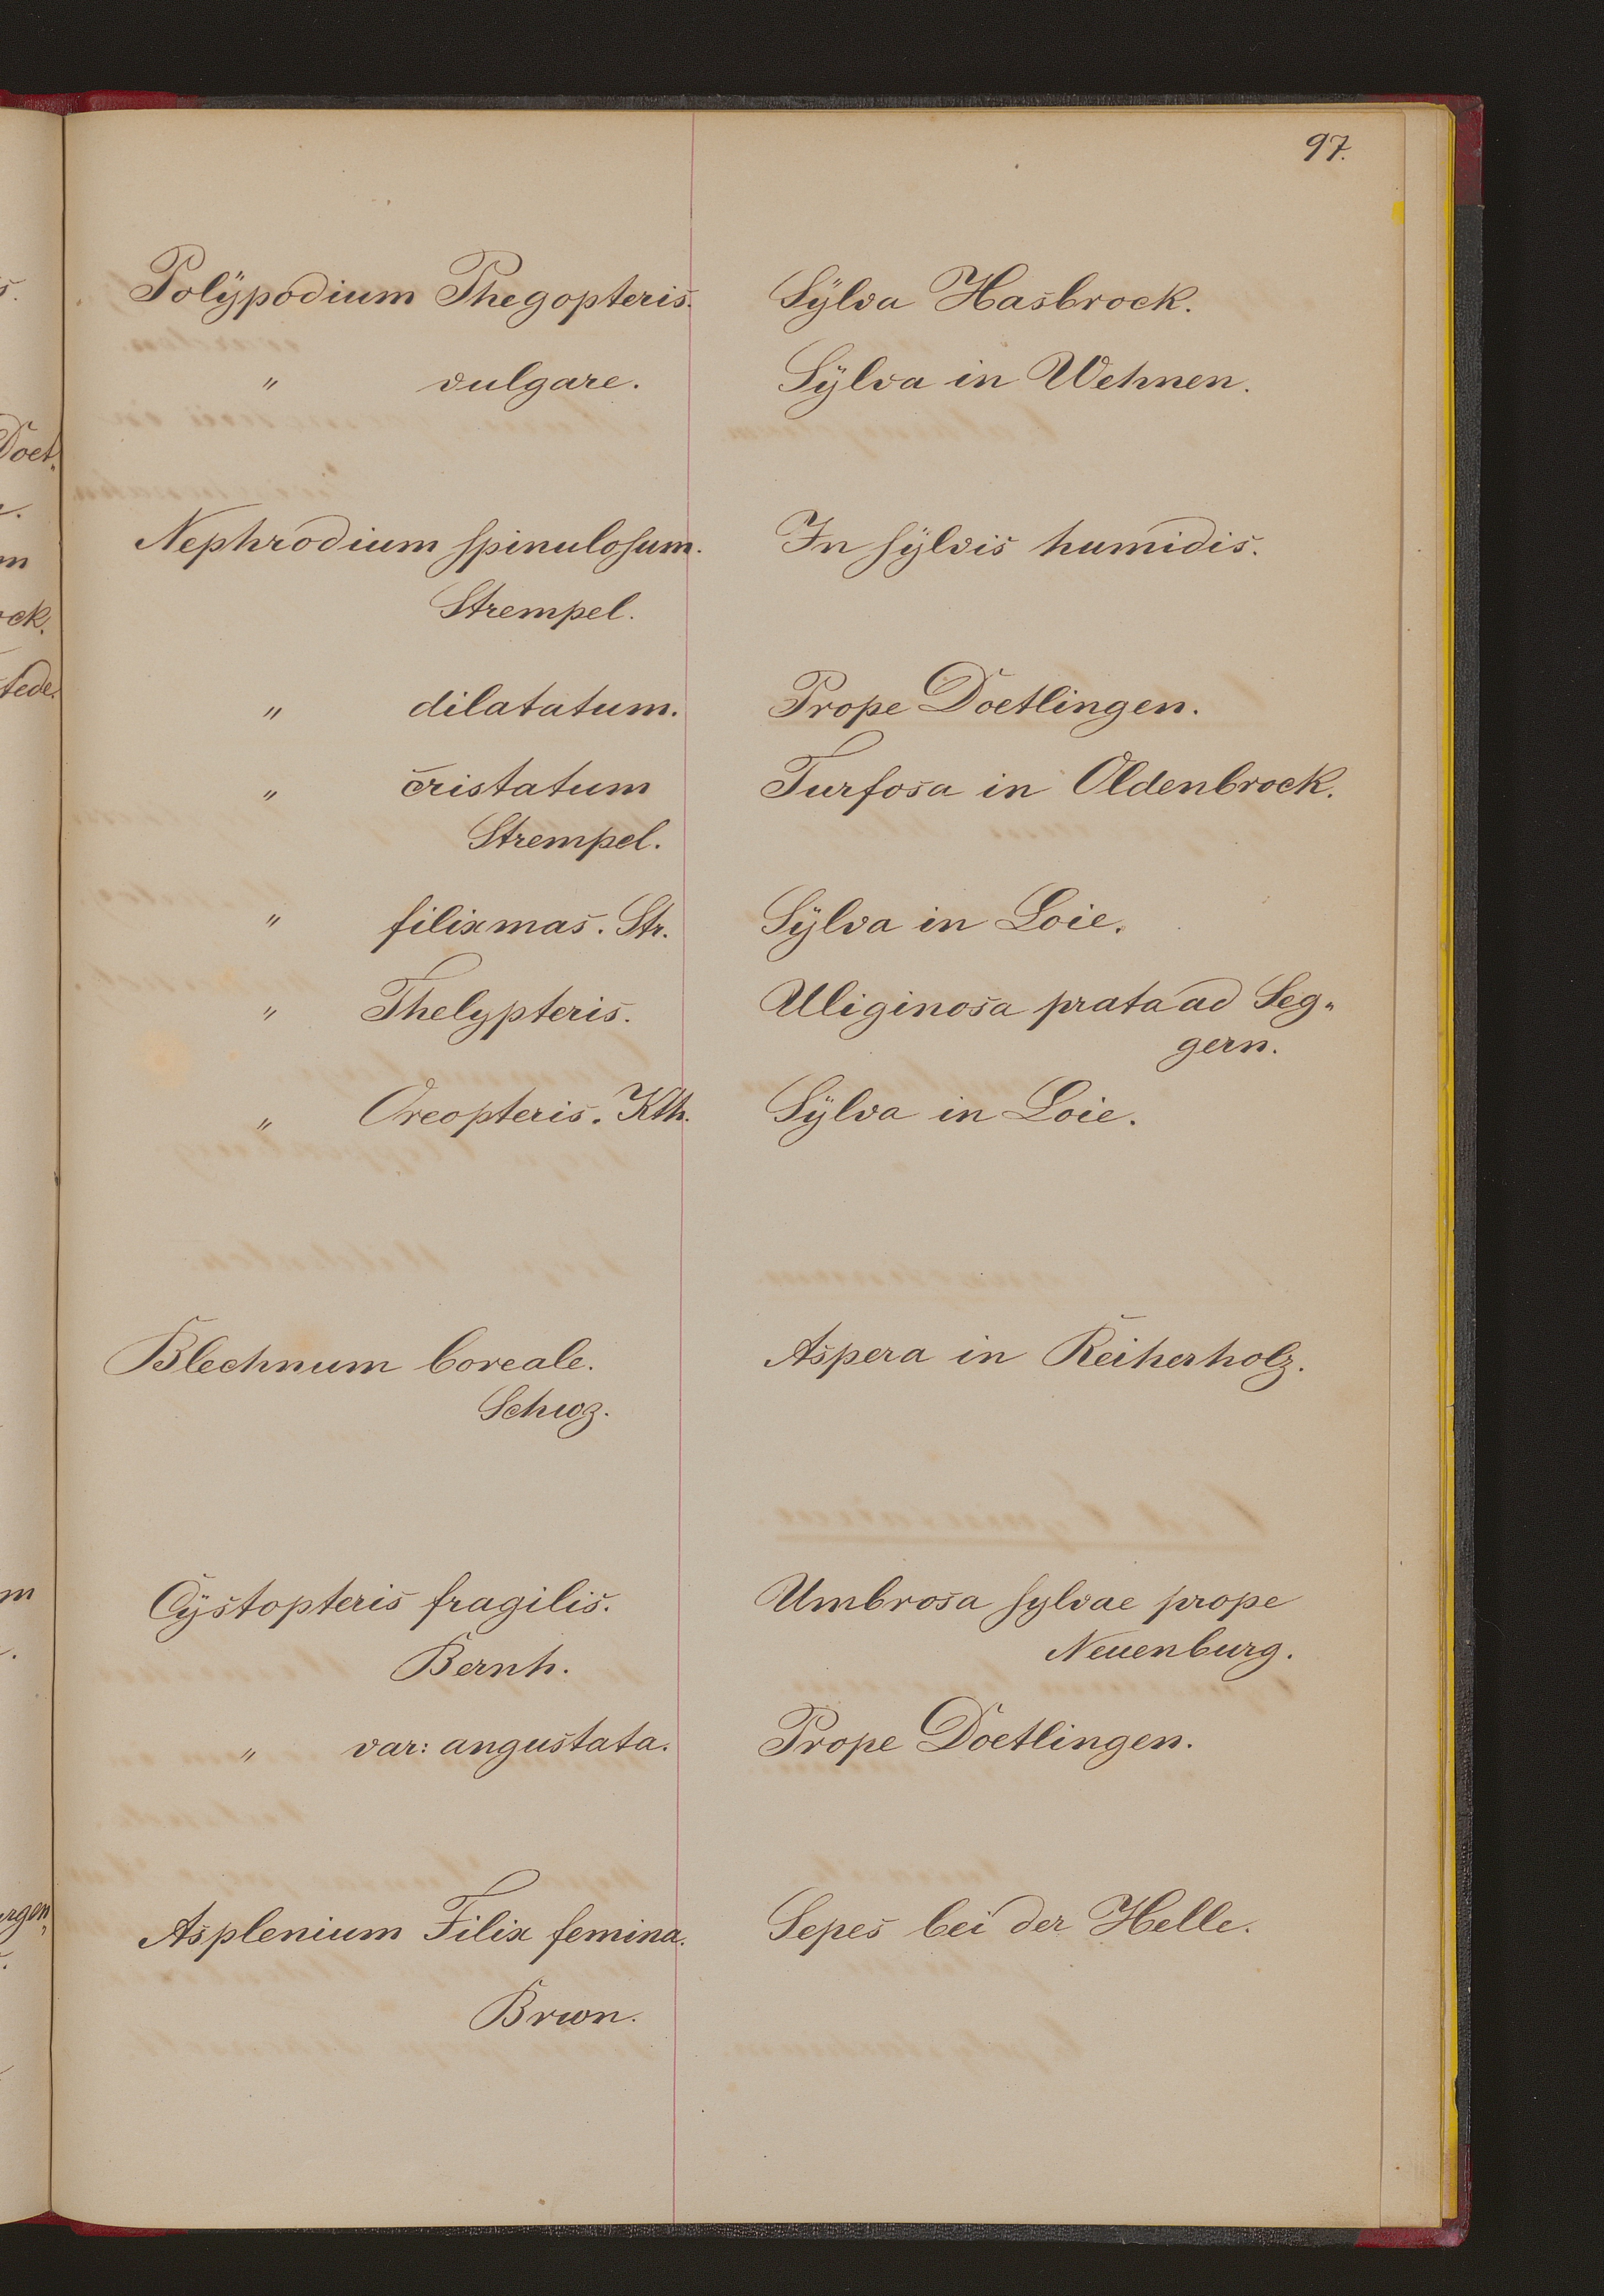 97.
Polÿpodium Phegopteris. Sÿlva Hasbrock.
" vulgare. Sÿlva in Wehnen.
Nephrodium spinulosum. In sÿlvis humidis.
Strempel.
" dilatatum. Prope Doetlingen.
" cristatum Turfosa in Oldenbrock.
Strempel.
" filix mas. Str. Sÿlva in Loie.
" Thelypteris. Uliginosa prata ad Seg„
gern.
" Oreopteris. Kth. Sÿlva in Loie.
Blechnum boreale. Aspera in Reiherholz.
Schwz.
Cÿstopteris fragilis. Umbrosa sylvae prope
Bernh. Neuenburg.
" var: angustata. Prope Doetlingen.
Asplenium Filix femina. Sepes bei der Helle.
Brwn.